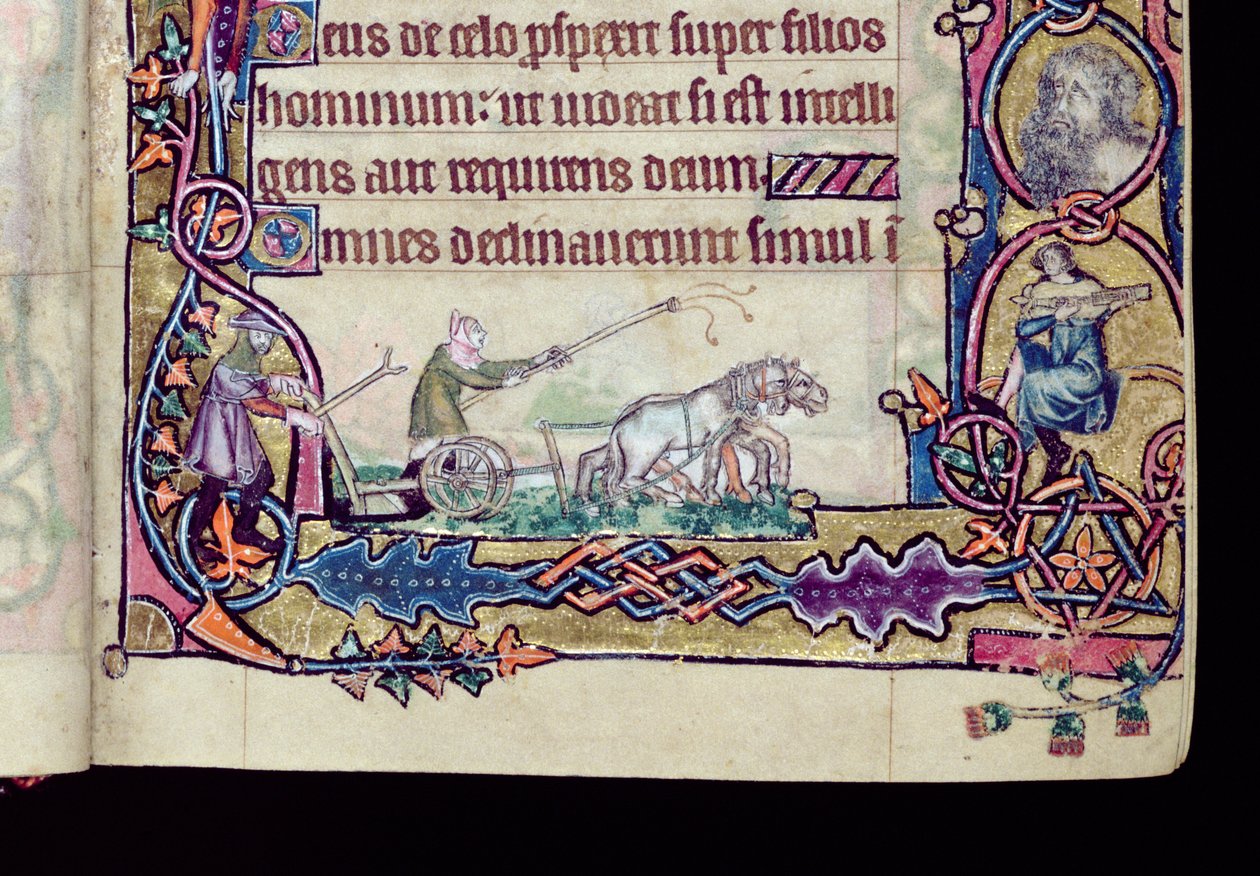 eus de celo ꝓspexit super filios
hominum: ut uideat si est intelli
gens aut requirens deum.
mnes declinauerunt simul ī